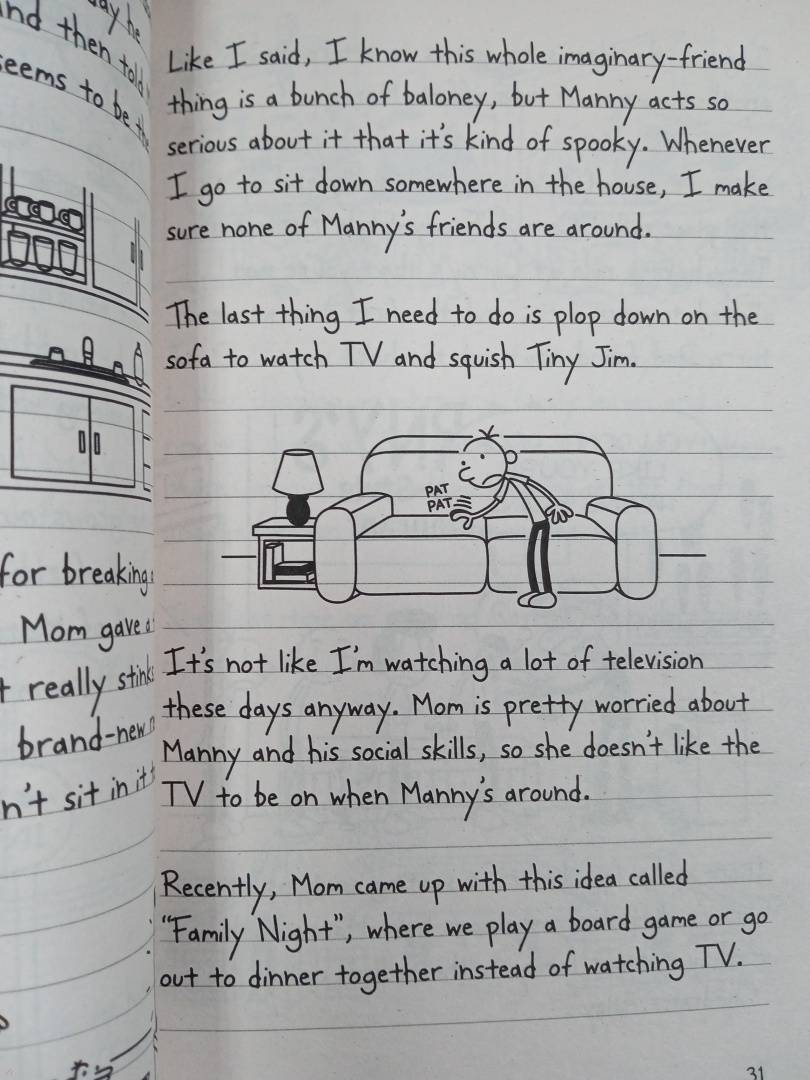 day he
and then told
seems to be
for breaking
Mom gave a
really stink
brand-new
n't sit in it
Like I said, I know this whole imaginary-friend
thing is a bunch of baloney, but Manny acts so
serious about it that it's kind of spooky. Whenever
I go to sit down somewhere in the house, I make
sure none of Manny's friends are around.
The last thing I need to do is plop down on the
sofa to watch TV and squish Tiny Jim.
PAT
PAT
It's not like I'm watching a lot of television
these days anyway. Mom is pretty worried about
Manny and his social skills, so she doesn't like the
TV to be on when Manny's around.
Recently, Mom came up with this idea called
"Family Night", where we play a board game or go
out to dinner together instead of watching TV.
31